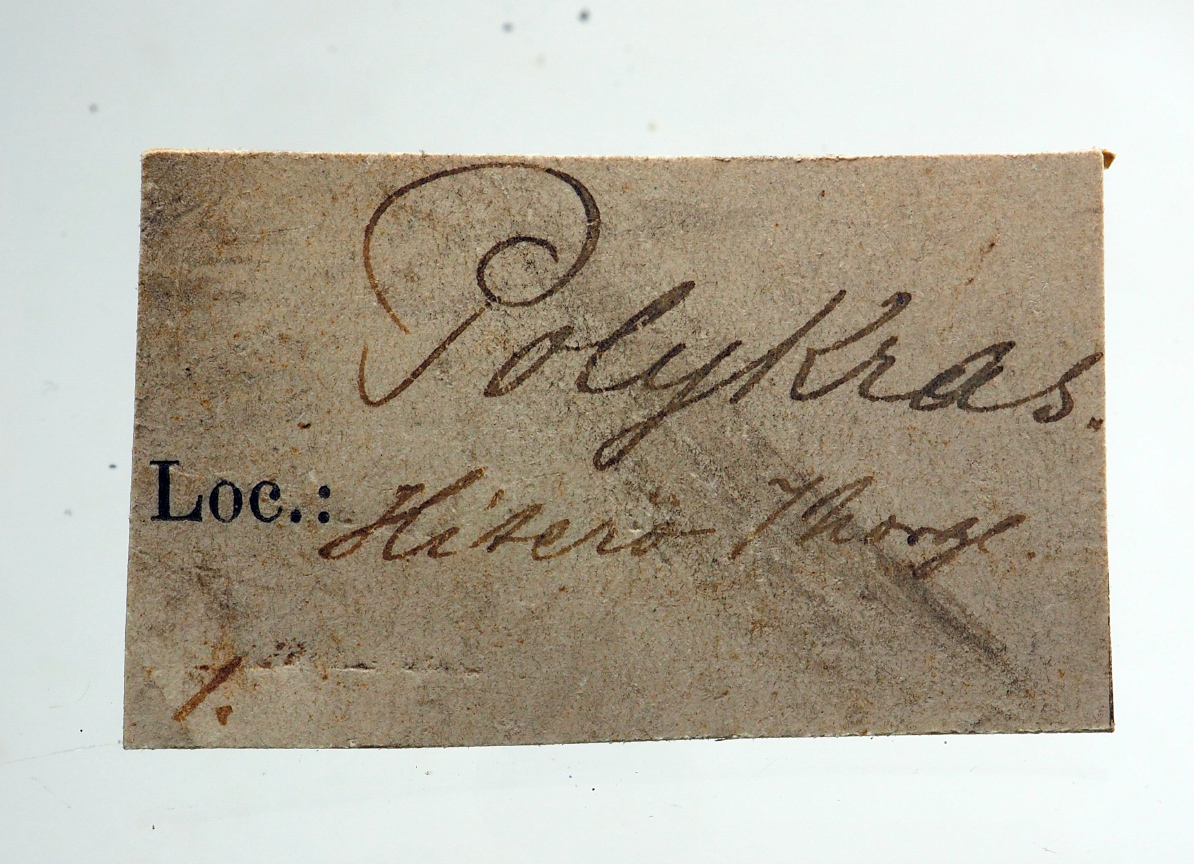 Polykras.
Loc.: Hiterö Norge.
1.